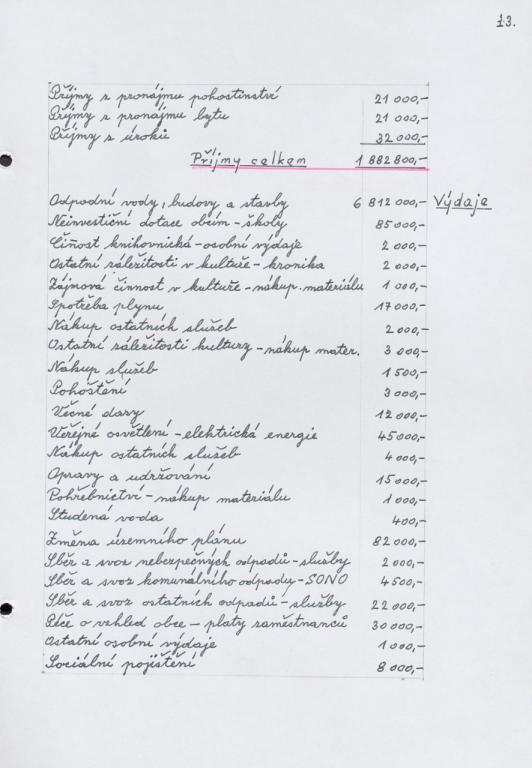 13.
Příjmy z pronájmu pohostinství 21 000,-
Příjmy z pronájmu bytu 21 000,-
Příjmy z úroků 32 000,-
Příjmy celkem 1 882 800,-
Odpadní vody, budovy a stavby 6 812 000,- Výdaje
Neinvestiční dotace obcím - školy 85 000,-
Činost knihovnická - osobní výdaje 2 000,-
Ostatní záležitosti v kultuře - kronika 2 000,-
Zájmová činnost v kultuře - nákup. materiálu 1 000,-
Spotřeba plynu 17 000,-
Nákup ostatních služeb 2 000,-
Ostatní záležitosti kultury - nákup mater. 3 000,-
Nákup služeb 1 500,-
Pohoštění 3 000,-
Věcné dary 12 000,-
Veřejné osvětlení - elektrická energie 45 000,-
Nákup ostatních služeb 4 000,-
Opravy a udržování 15 000,-
Pohřebnictví - nákup materiálu 1 000,-
Studená voda 400,-
Změna územního plánu 82 000,-
Sběr a svoz nebezpečných odpadů - služby 2 000,-
Sběr a svoz komunálního odpady - SONO 4 500,-
Sběr a svoz ostatních odpadů - služby 22 000,-
Péče o vzhled obce - platy zaměstnanců 30 000,-
Ostatní osobní výdaje 1 000,-
Sociální pojištění 8 000,-